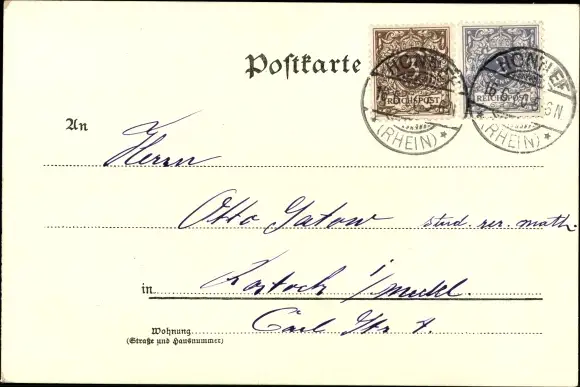 Postkarte
REICHSPOST REICHSPOST
HONNEF HONNEF
(RHEIN) (RHEIN)
An
Herrn
Otto Gatow stud. rer. math.
in Rostock i/meckl.
Wohnung Carl Str
(Straße und Hausnummer)